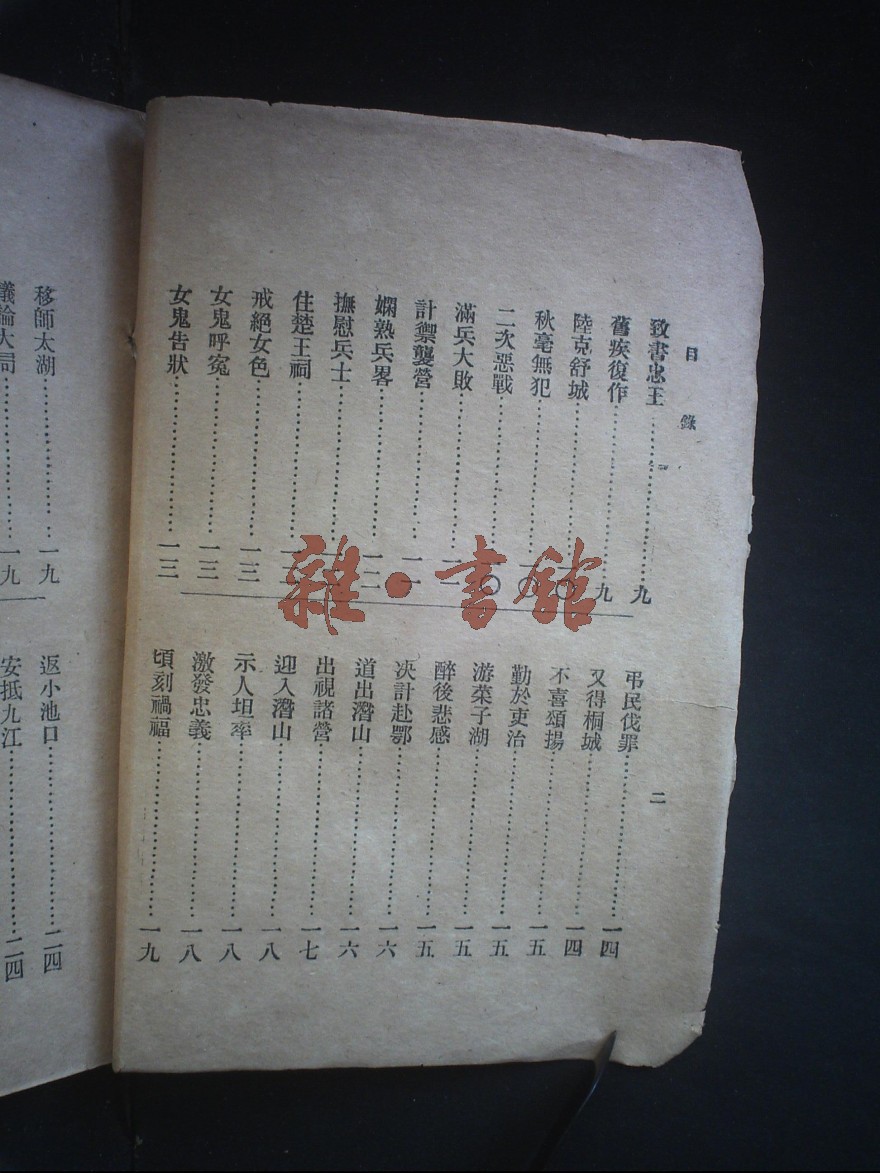 目錄
二
致書忠王……九
舊疾復作……九
陸克舒城……〇
秋毫無犯……一〇
二次惡戰……一〇
滿兵大敗……
計禦襲營……一一
嫻熟兵畧……一二
撫慰兵士……
住楚王祠……
戒絕女色……一三
女鬼呼冤……一三
女鬼告狀……一三
弔民伐罪……一四
又得桐城……一四
不喜頌揚……一五
勤於吏治……一五
游菜子湖……一五
醉後悲感……一五
決計赴鄂……一六
道出潛山……一六
出視諸營……一七
迎入潛山……一八
示人坦率……一八
激發忠義……一八
頃刻禍福……一九
移師太湖……一九
議論大……一九
返小池口……二四
安抵九江……二四
雜·書館